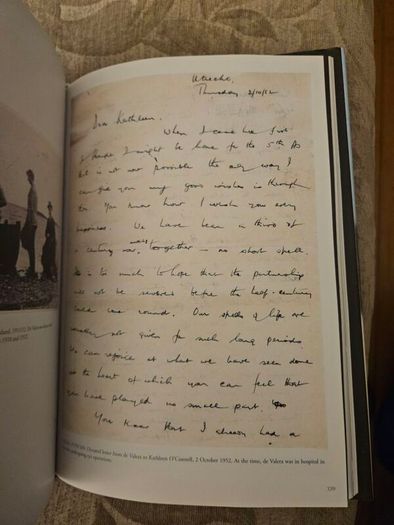 Utrecht,
Thursday 2/10/52
Dear Kathleen.
When I came here first
I thought I might be home for the 5th As
that is not now possible the only way I
can give you my good wishes is through
this. You know how I wish you every
happiness. We have been a third of
a century now together – no short spell.
It is too much to hope that the partnership
will not be severed before the half-century
could come round. Our spells of life are
usually not given for such long periods.
We can rejoice at what we have seen done
at the heart of which you can feel that
you have played no small part.
You know that I always had a
letter from de Valera to Kathleen O'Connell, 2 October 1952. At the time, de Valera was in hospital in
undergoing eye operations.
and 1932.